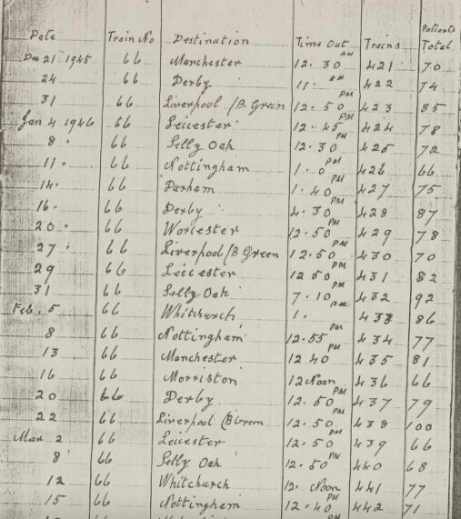 Date Train No Destination Time Out Trains Patients Total
Dec 21 1945 66 Manchester 12.30 AM 421 70
24 66 Derby 11. AM 422 74
31 66 Liverpool /B Green 12.50 PM 423 85
Jan 4 1946 66 Leicester 12.45 PM 424 78
8 66 Selly Oak 12.30 PM 425 72
11 66 Nottingham 1.0 PM 426 66
14 66 Durham 1.40 PM 427 75
16 66 Derby 4.30 PM 428 87
20 66 Worcester 12.50 PM 429 78
27 66 Liverpool/B Green 12.50 PM 430 70
29 66 Leicester 12 50 PM 431 82
31 66 Selly Oak 7.10 PM 432 92
Feb. 5 66 Whitchurch 1. 433 86
8 66 Nottingham 12.55 PM 434 77
13 66 Manchester 12 40 PM 435 81
16 66 Morriston 12 Noon 436 66
20 66 Derby 12.50 PM 437 79
22 66 Liverpool /B Green 12.50 PM 438 100
Mar 2 66 Leicester 12.50 PM 439 66
8 66 Selly Oak 12.50 PM 440 68
12 66 Whitchurch 12. Noon 441 77
15 66 Nottingham 12.40 PM 442 71